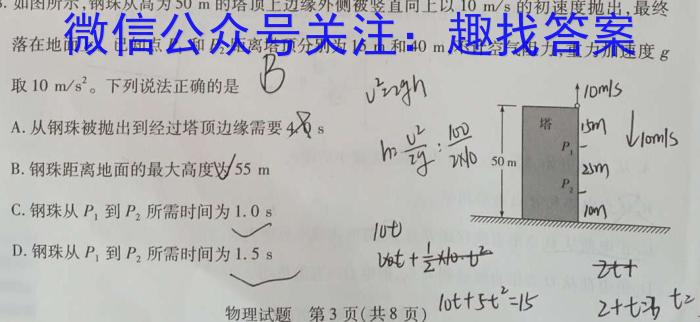 如图所示,钢珠从高为50 m的塔顶上边缘外侧被竖直向上以10 m/s的初速度抛出,最终
落在地面
距离塔顶分别为15 m和40 m
重力加速度 g
微信公众号关注：趣找答案
取10 m/s²。下列说法正确的是
B
A. 从钢珠被抛出到经过塔顶边缘需要4.0 s
B. 钢珠距离地面的最大高度为55 m
C. 钢珠从 P₁ 到 P₂ 所需时间为1.0 s
D. 钢珠从 P₁ 到 P₂ 所需时间为1.5 s
v²=2gh
h= v²/2g : 100/2×10
10t
10t+5t²=15
10m/s
塔
15m
10m/s
P₁
50 m
25m
P₂
10m
2t+
物理试题 第3页(共8页)